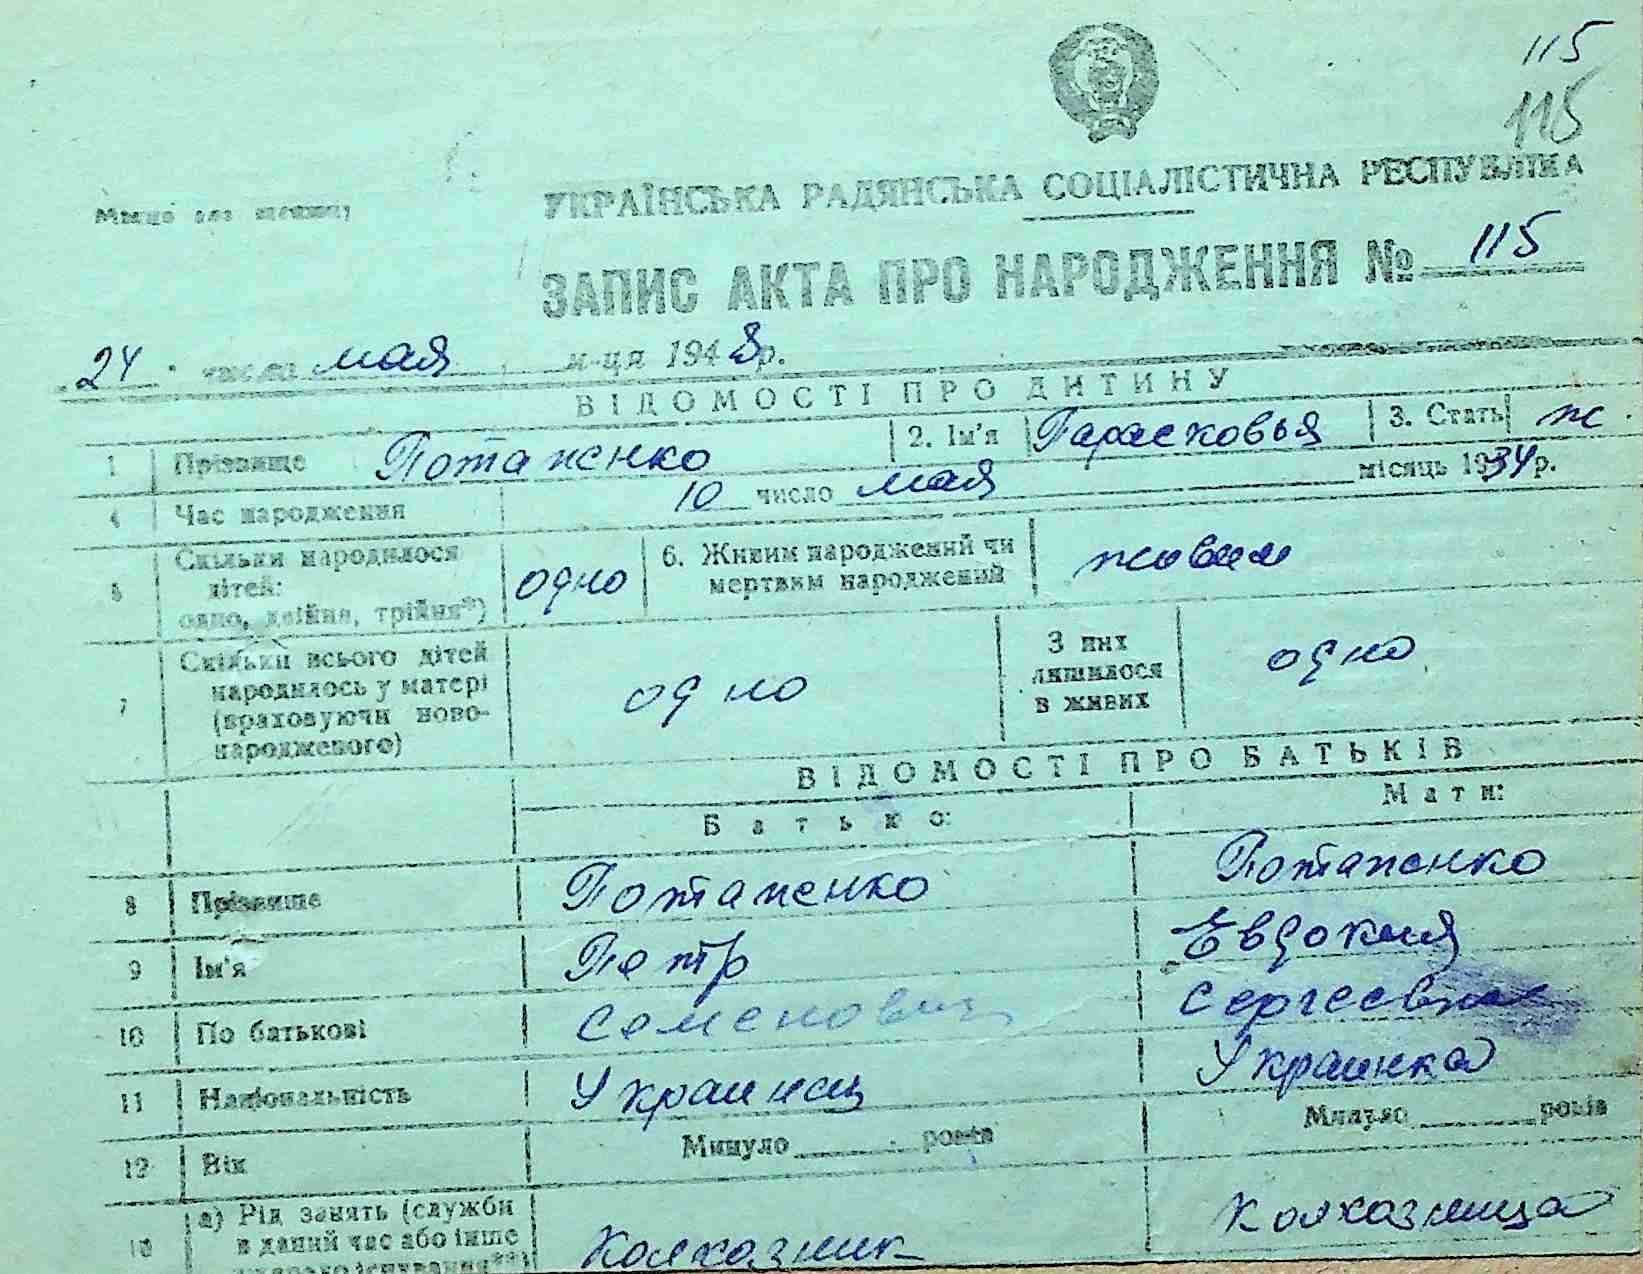 115
115
Місце для штампу
УКРАЇНСЬКА РАДЯНСЬКА СОЦІАЛІСТИЧНА РЕСПУБЛІКА
ЗАПИС АКТА ПРО НАРОДЖЕННЯ № 115
24 числа мая м-ця 1948 р.
ВІДОМОСТІ ПРО ДИТИНУ
1 Прізвище Потапенко 2. Ім'я Парасковья 3. Стать ж.
4 Час народження 10 число мая місяць 1934 р.
5 Скільки народилося дітей: одно, двійня, трійня*) одно 6. Живим народжений чи мертвим народжений живым
7 Скільки всього дітей народилось у матері (враховуючи новонародженого) одно З них лишилося в живих одно
ВІДОМОСТІ ПРО БАТЬКІВ
Батько: Мати:
8 Прізвище Потапенко Потапенко
9 Ім'я Петр Евдокия
10 По батькові Семенович Сергеевна
11 Національність Украинец Украинка
12 Вік Минуло років Минуло років
13 а) Рід занять (служби в даний час або інше Колхозник Колхозница